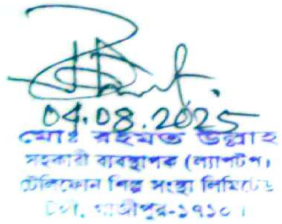 04.08.2025
মোঃ রহমত উল্লাহ
সহকারী ব্যবস্থাপক (ল্যাপটপ)
টেলিফোন শিল্প সংস্থা লিমিটেড
টঙ্গী, গাজীপুর-১৭১০।